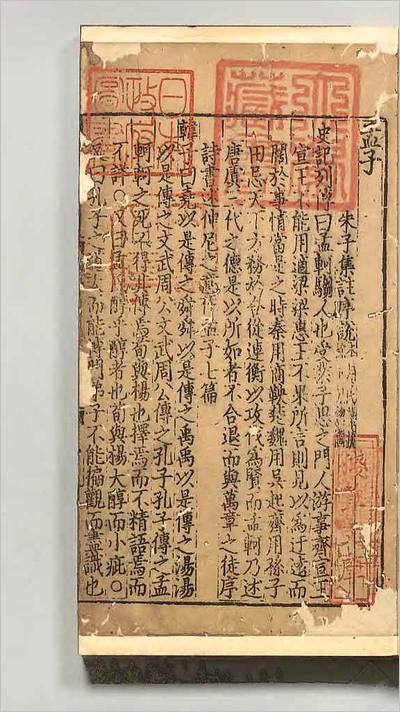 孟子
朱子集註序說
史記列傳曰孟軻騶人也受業子思之門人游事齊宣王
宣王不能用適梁梁惠王不果所言則見以為迂遠而
闊於事情當是之時秦用商鞅楚魏用吳起齊用孫子
田忌天下方務於合從連衡以攻伐為賢而孟軻乃述
唐虞三代之德是以所如者不合退而與萬章之徒序
詩書述仲尼之意作孟子七篇
韓子曰堯以是傳之舜舜以是傳之禹禹以是傳之湯湯
以是傳之文武周公文武周公傳之孔子孔子傳之孟
軻軻之死不得其傳焉荀與楊也擇焉而不精語焉而
不詳○又曰孟氏醇乎醇者也荀與楊大醇而小疵○
又曰孔子之道大而能博門弟子不能徧觀而盡識也
日本政府圖書